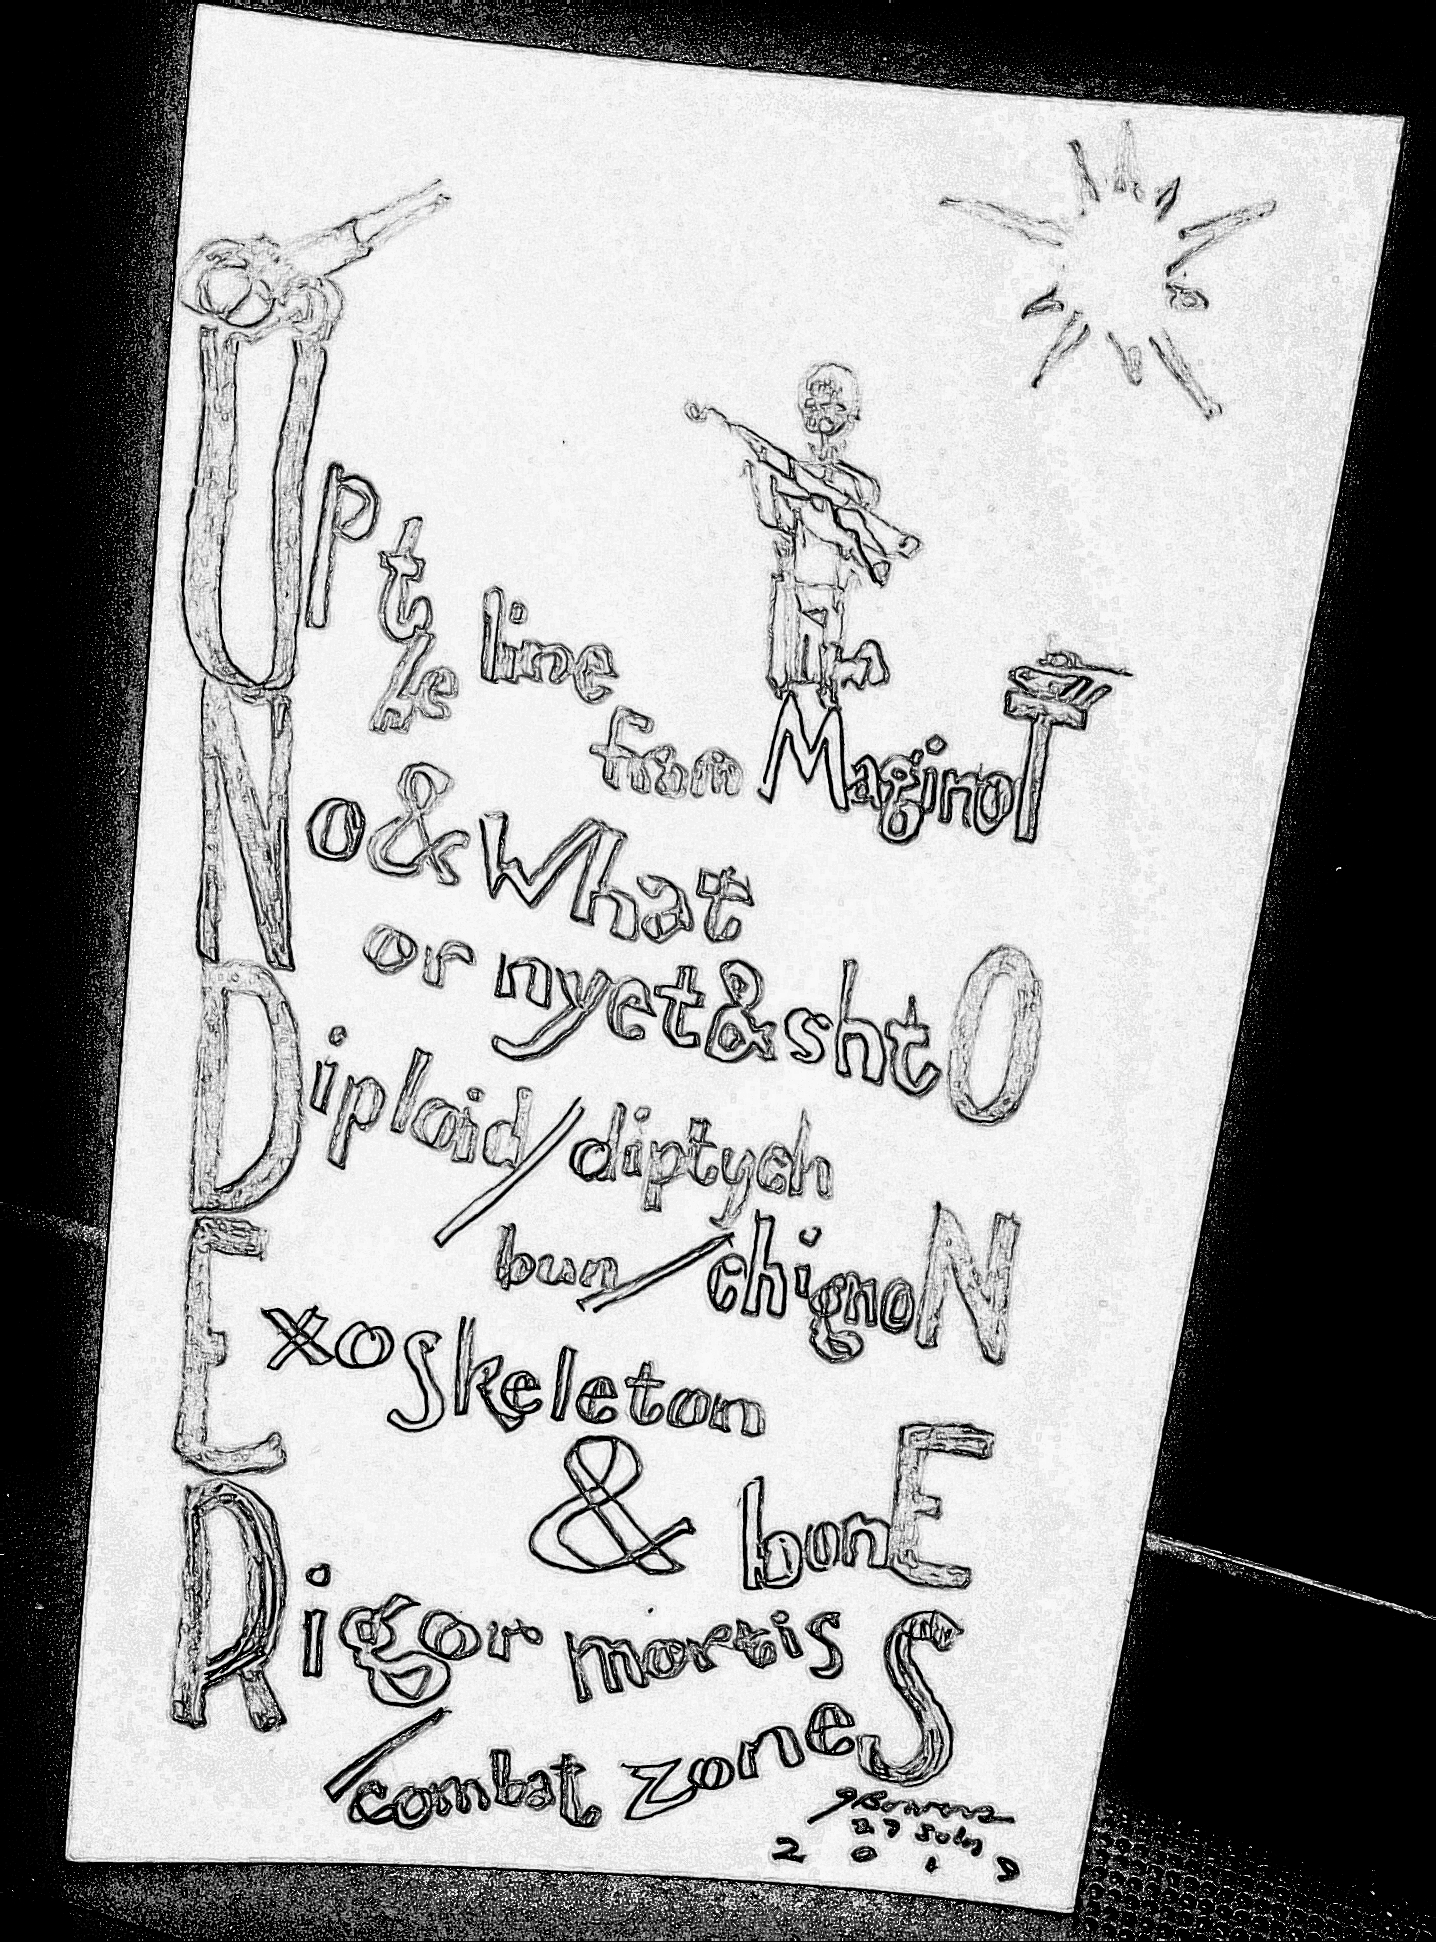 Up the line
from MaginoT
No & What
or nyet & shtO
Diploid/diptych
bun/chignoN
Exoskeleton
& bonE
Rigor mortis
/combat zoneS
27 July
2019